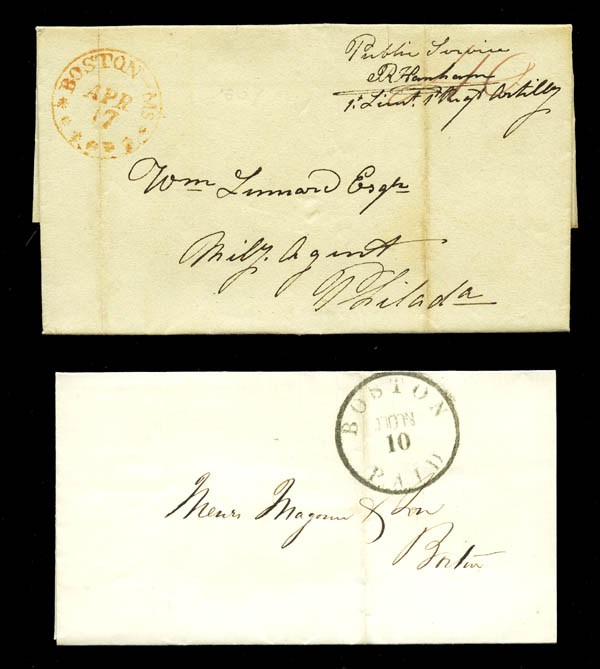 BOSTON MS
APR
17
Public Service
JR Hanham
1st Lieut. 1st Regt Artilly
Wm Linnard Esqr
Mily. Agent
Philada
BOSTON
JUN
10
PAID
Messrs Magoun & Son
Boston